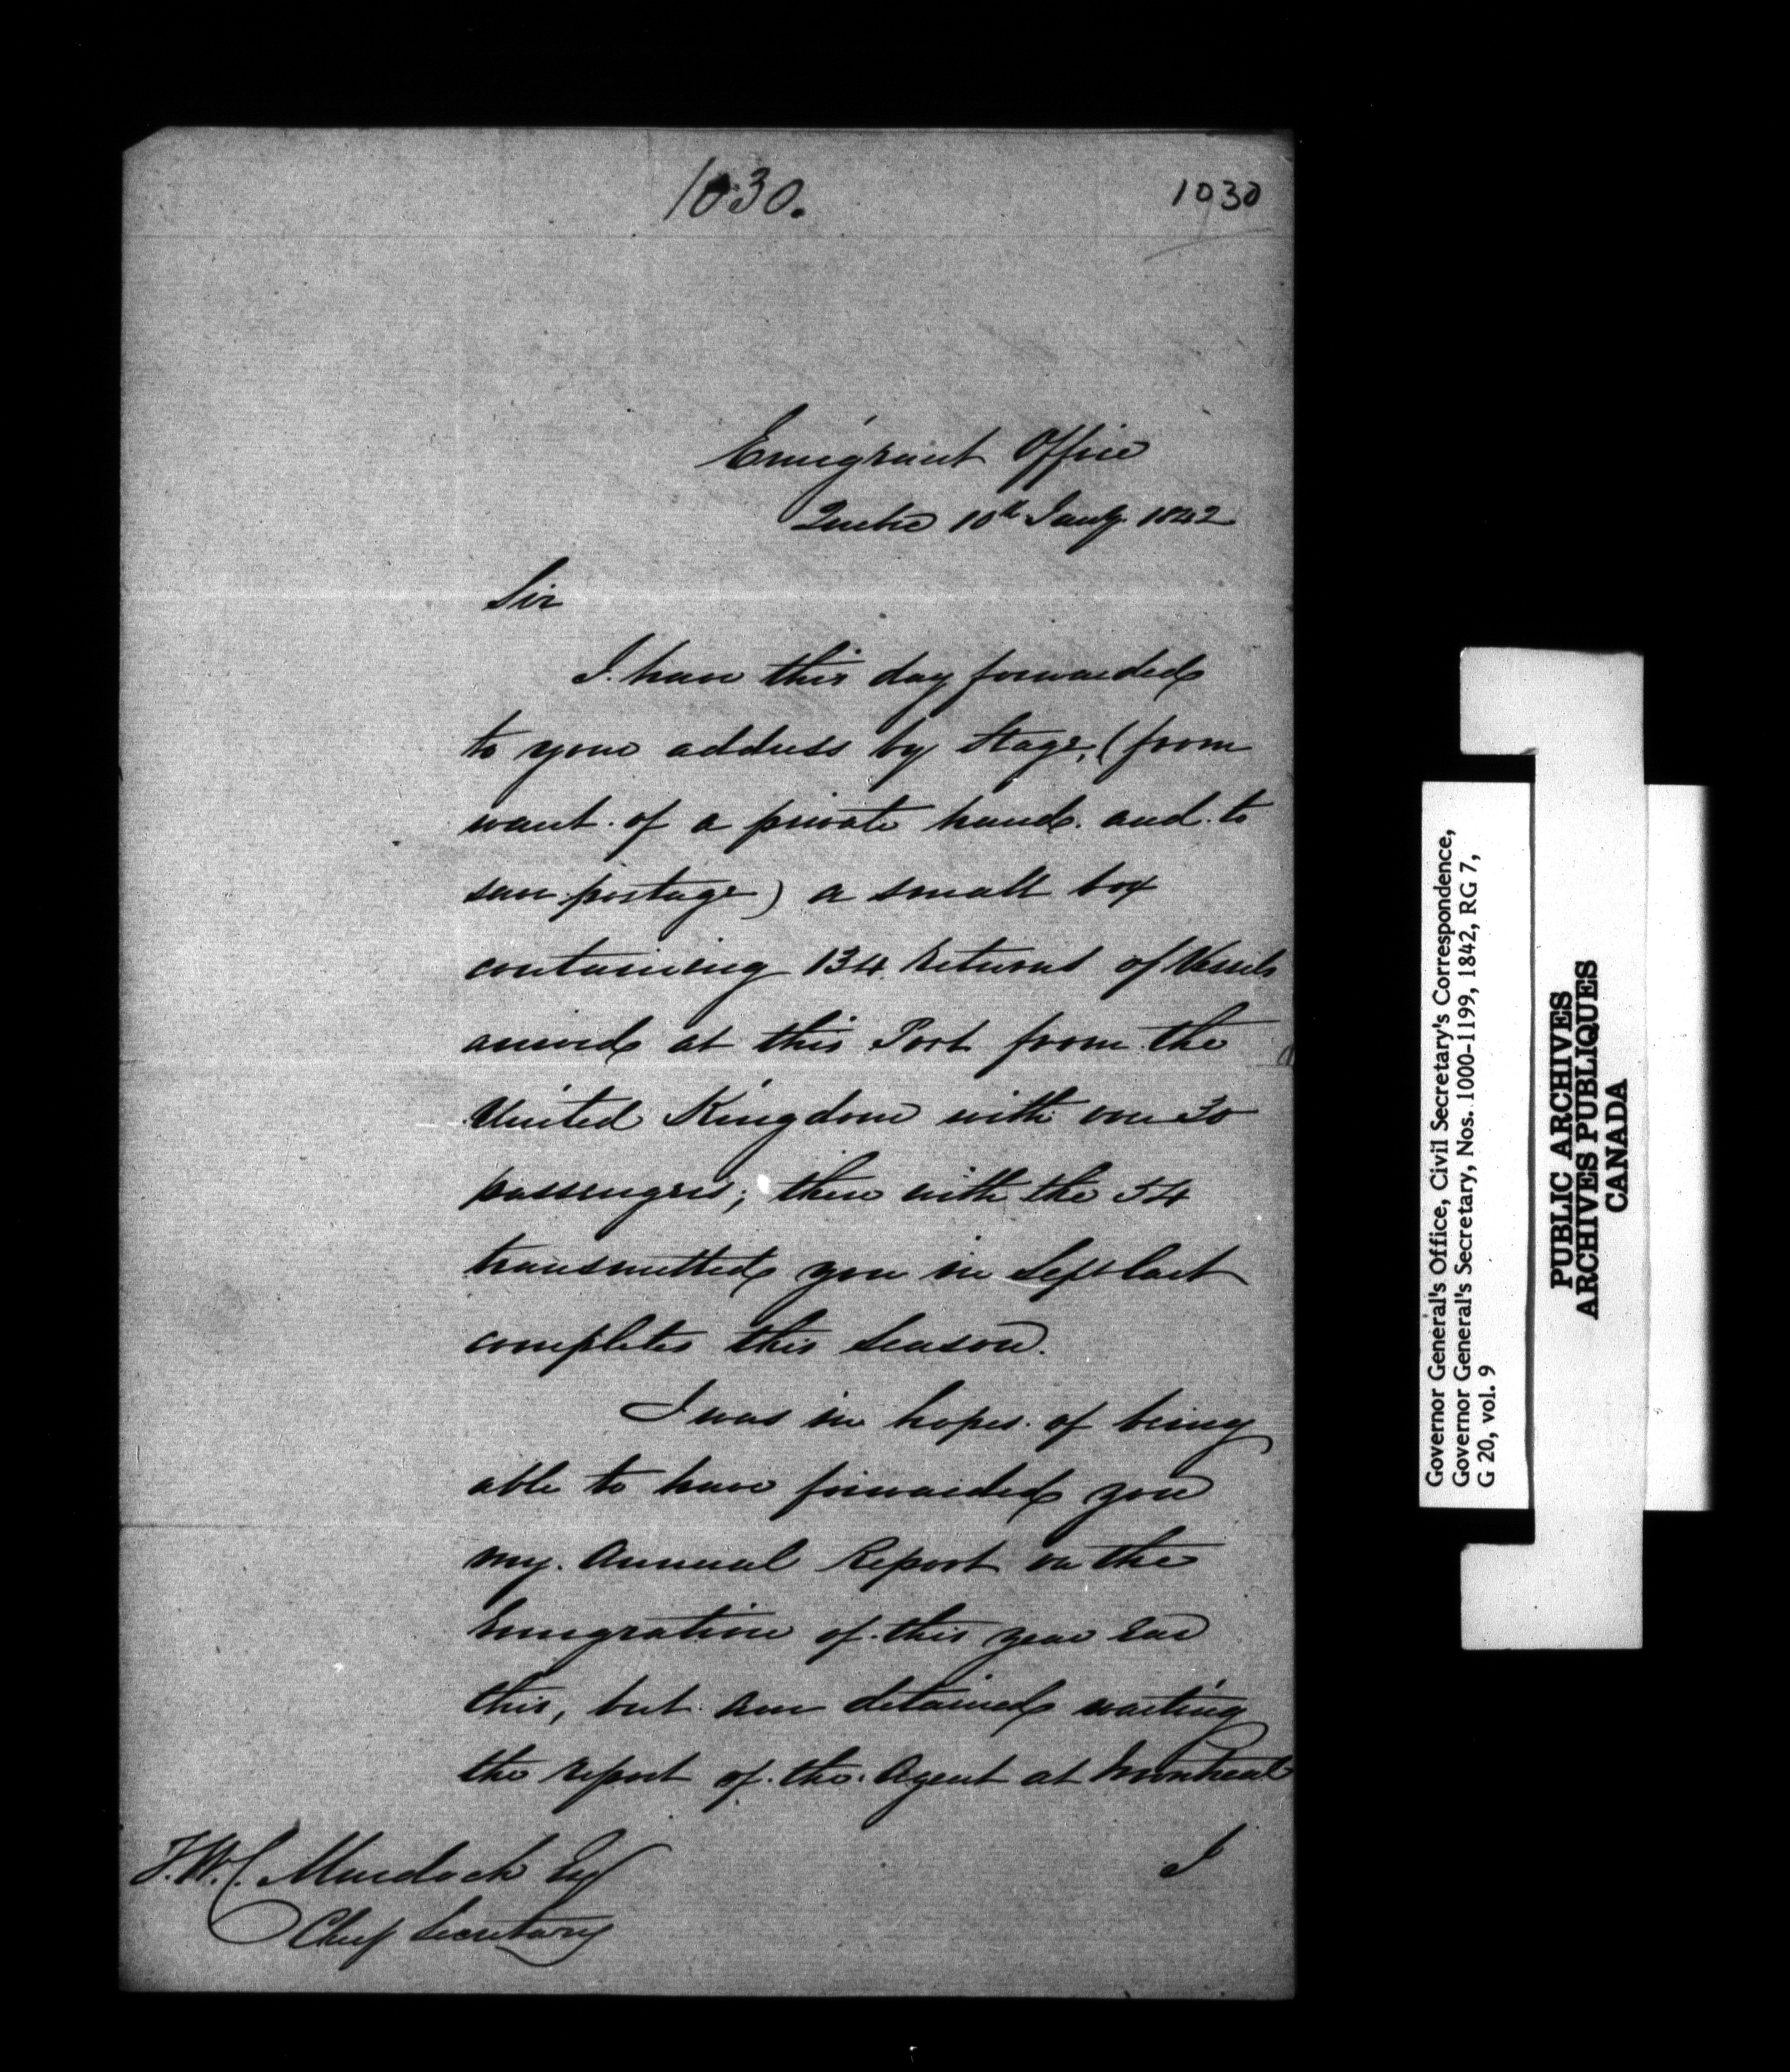 1030.
1030
Emigrant Office
Quebec 10th Jany. 1842
Sir
I have this day forwarded
to your address by Stage, (from
want of a private hand and to
save postage) a small box
containing 134 Returns of Vessels
arrived at this Port from the
United Kingdom with over 30
passengers; these with the 54
transmitted you in Sept last
completes this Season.
I was in hopes of being
able to have forwarded you
my Annual Report on the
Emigration of this year ere
this, but am detained waiting
the report of the Agent at Montreal
I
T.W.C. Murdoch Esq
Chief Secretary
Governor General's Office, Civil Secretary's Correspondence,
Governor General's Secretary, Nos. 1000-1199, 1842, RG 7,
G 20, vol. 9
PUBLIC ARCHIVES
ARCHIVES PUBLIQUES
CANADA